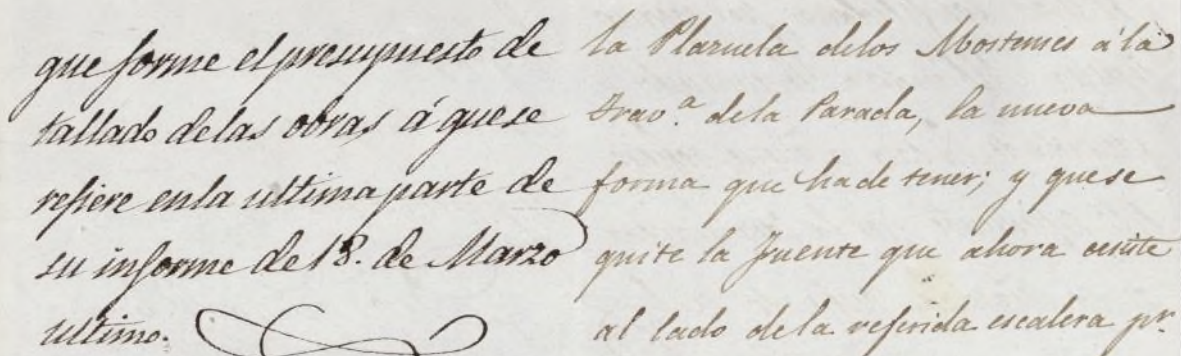 que forme el presupuesto de
tallado delas obras á quese
refiere enla ultima parte de
su informe de 18. de Marzo
ultimo.
la Plazuela delos Mostenses á la
Trav.ª dela Parada, la nueva
forma que hade tener; y quese
quite la Fuente que ahora ecsiste
al lado dela referida escalera pr.